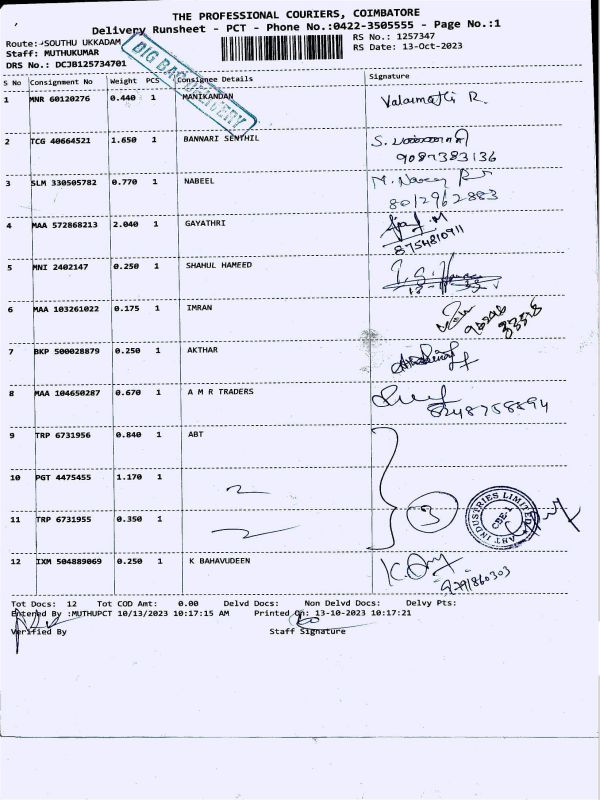 THE PROFESSIONAL COURIERS, COIMBATORE
Delivery Runsheet - PCT - Phone No.:0422-3505555 - Page No.:1
Route:-SOUTHU UKKADAM
RS No.: 1257347
Staff: MUTHUKUMAR
RS Date: 13-Oct-2023
DRS No.: DCJB125734701
BIG BAG DELIVERY
S No Consignment No Weight PCS Consignee Details Signature
1 MNR 60120276 0.440 1 MANIKANDAN Valarmathi R.
2 TCG 40664521 1.650 1 BANNARI SENTHIL S.
9087383136
3 SLM 330505782 0.770 1 NABEEL M.
8012962883
4 MAA 572868213 2.040 1 GAYATHRI
8754810911
5 MNI 2402147 0.250 1 SHAHUL HAMEED
6 MAA 103261022 0.175 1 IMRAN
7 BKP 500028879 0.250 1 AKTHAR
8 MAA 104650287 0.670 1 A M R TRADERS
8248758894
9 TRP 6731956 0.840 1 ABT
10 PGT 4475455 1.170 1
3
ABT INDUSTRIES LIMITED
CBE-1
11 TRP 6731955 0.350 1
12 IXM 504889069 0.250 1 K BAHAVUDEEN
9791860303
Tot Docs: 12 Tot COD Amt: 0.00 Delvd Docs: Non Delvd Docs: Delvy Pts:
Entered By :MUTHUPCT 10/13/2023 10:17:15 AM Printed On: 13-10-2023 10:17:21
Verified By Staff Signature